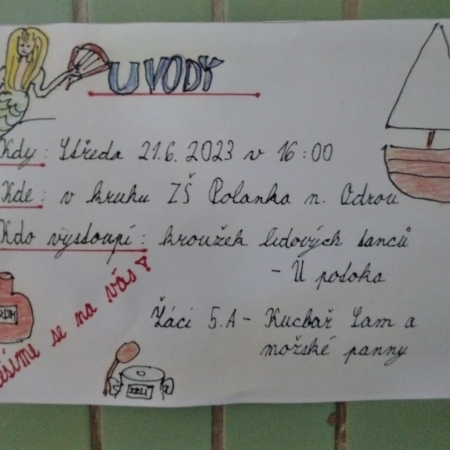 U VODY
Kdy: Středa 21.6. 2023 v 16:00
Kde: v kruhu ZŠ Polanka n. Odrou
Kdo vystoupí: kroužek lidových tanců
- U potoka
Žáci 5.A - Kuchař Sam a
mořské panny
se na vás!
ZELÍ